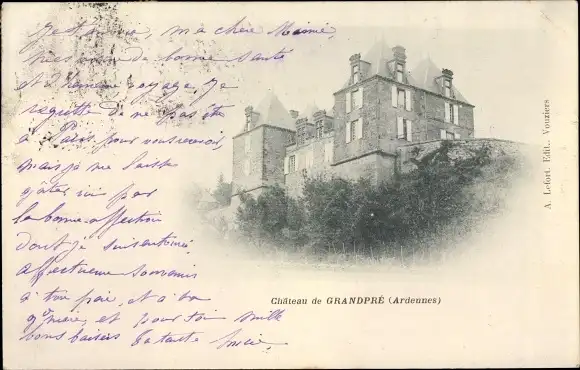 ma chère Mimie,
de bonne santé
et d'humeur voyage, Je
regrette de ne pas être
à Paris pour vous revoir,
mais je me laisse
gâter ici par
la bonne affection
dont je suis entourée
affectueux souvenirs
à ton père, et à ta
et pour toi mille
bons baisers ta tante
Château de GRANDPRÉ (Ardennes)
A. Lefort, Edit., Vouziers